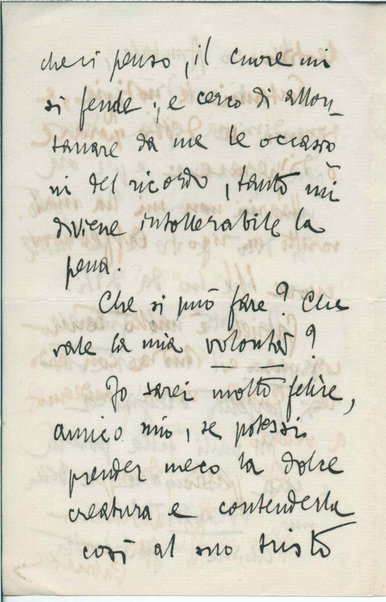 che ci penso, il cuore mi
si fende; e cerco di allon-
tanare da me le occasio
ni del ricordo, tanto mi
diviene intollerabile la
pena.
Che si può fare? Che
vale la mia volontà?
Io sarei molto felice,
amico mio, se potessi
prender meco la dolce
creatura e contenderla
così al suo tristo